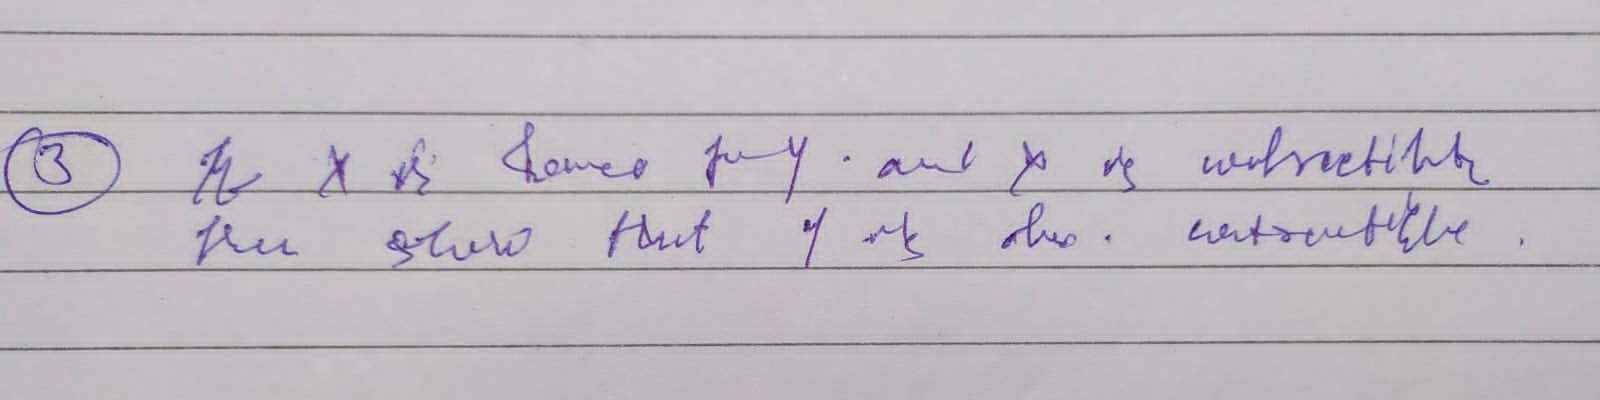 ③ If X is homeo to Y. and X is contractible
then show that Y is also. contractible.